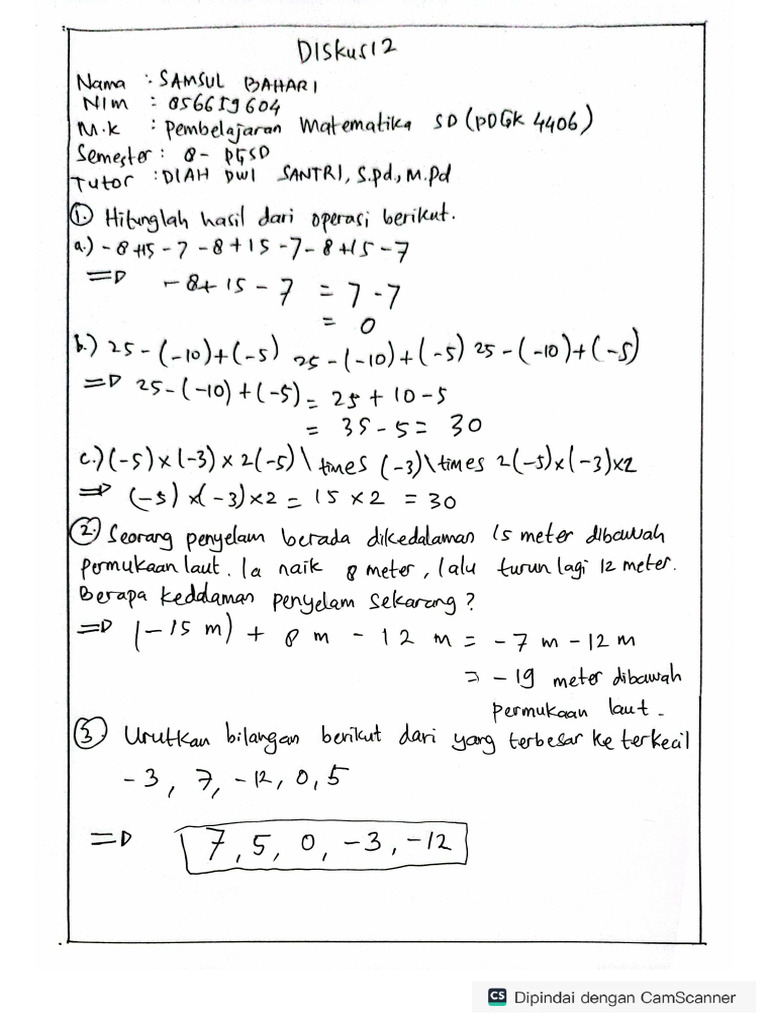 Diskusi 2
Nama : SAMSUL BAHARI
NIM : 856659604
M.k : Pembelajaran Matematika SD (PDGK 4406)
Semester : 8 - PGSD
Tutor : DIAH DWI SANTRI, S.Pd., M.Pd
1. Hitunglah hasil dari operasi berikut.
a.) -8+15-7-8+15-7-8+15-7
=> -8+15-7 = 7-7
= 0
b.) 25-(-10)+(-5) 25-(-10)+(-5) 25-(-10)+(-5)
=> 25-(-10)+(-5) = 25+10-5
= 35-5 = 30
c.) (-5)×(-3)×2(-5)\times (-3)\times 2(-5)×(-3)×2
=> (-5)×(-3)×2 = 15×2 = 30
2. Seorang penyelam berada dikedalaman 15 meter dibawah
permukaan laut. Ia naik 8 meter, lalu turun lagi 12 meter.
Berapa kedalaman penyelam sekarang?
=> (-15 m) + 8 m - 12 m = -7 m - 12 m
= -19 meter dibawah
permukaan laut.
3. Urutkan bilangan berikut dari yang terbesar ke terkecil
-3, 7, -12, 0, 5
=> 7, 5, 0, -3, -12
CS Dipindai dengan CamScanner